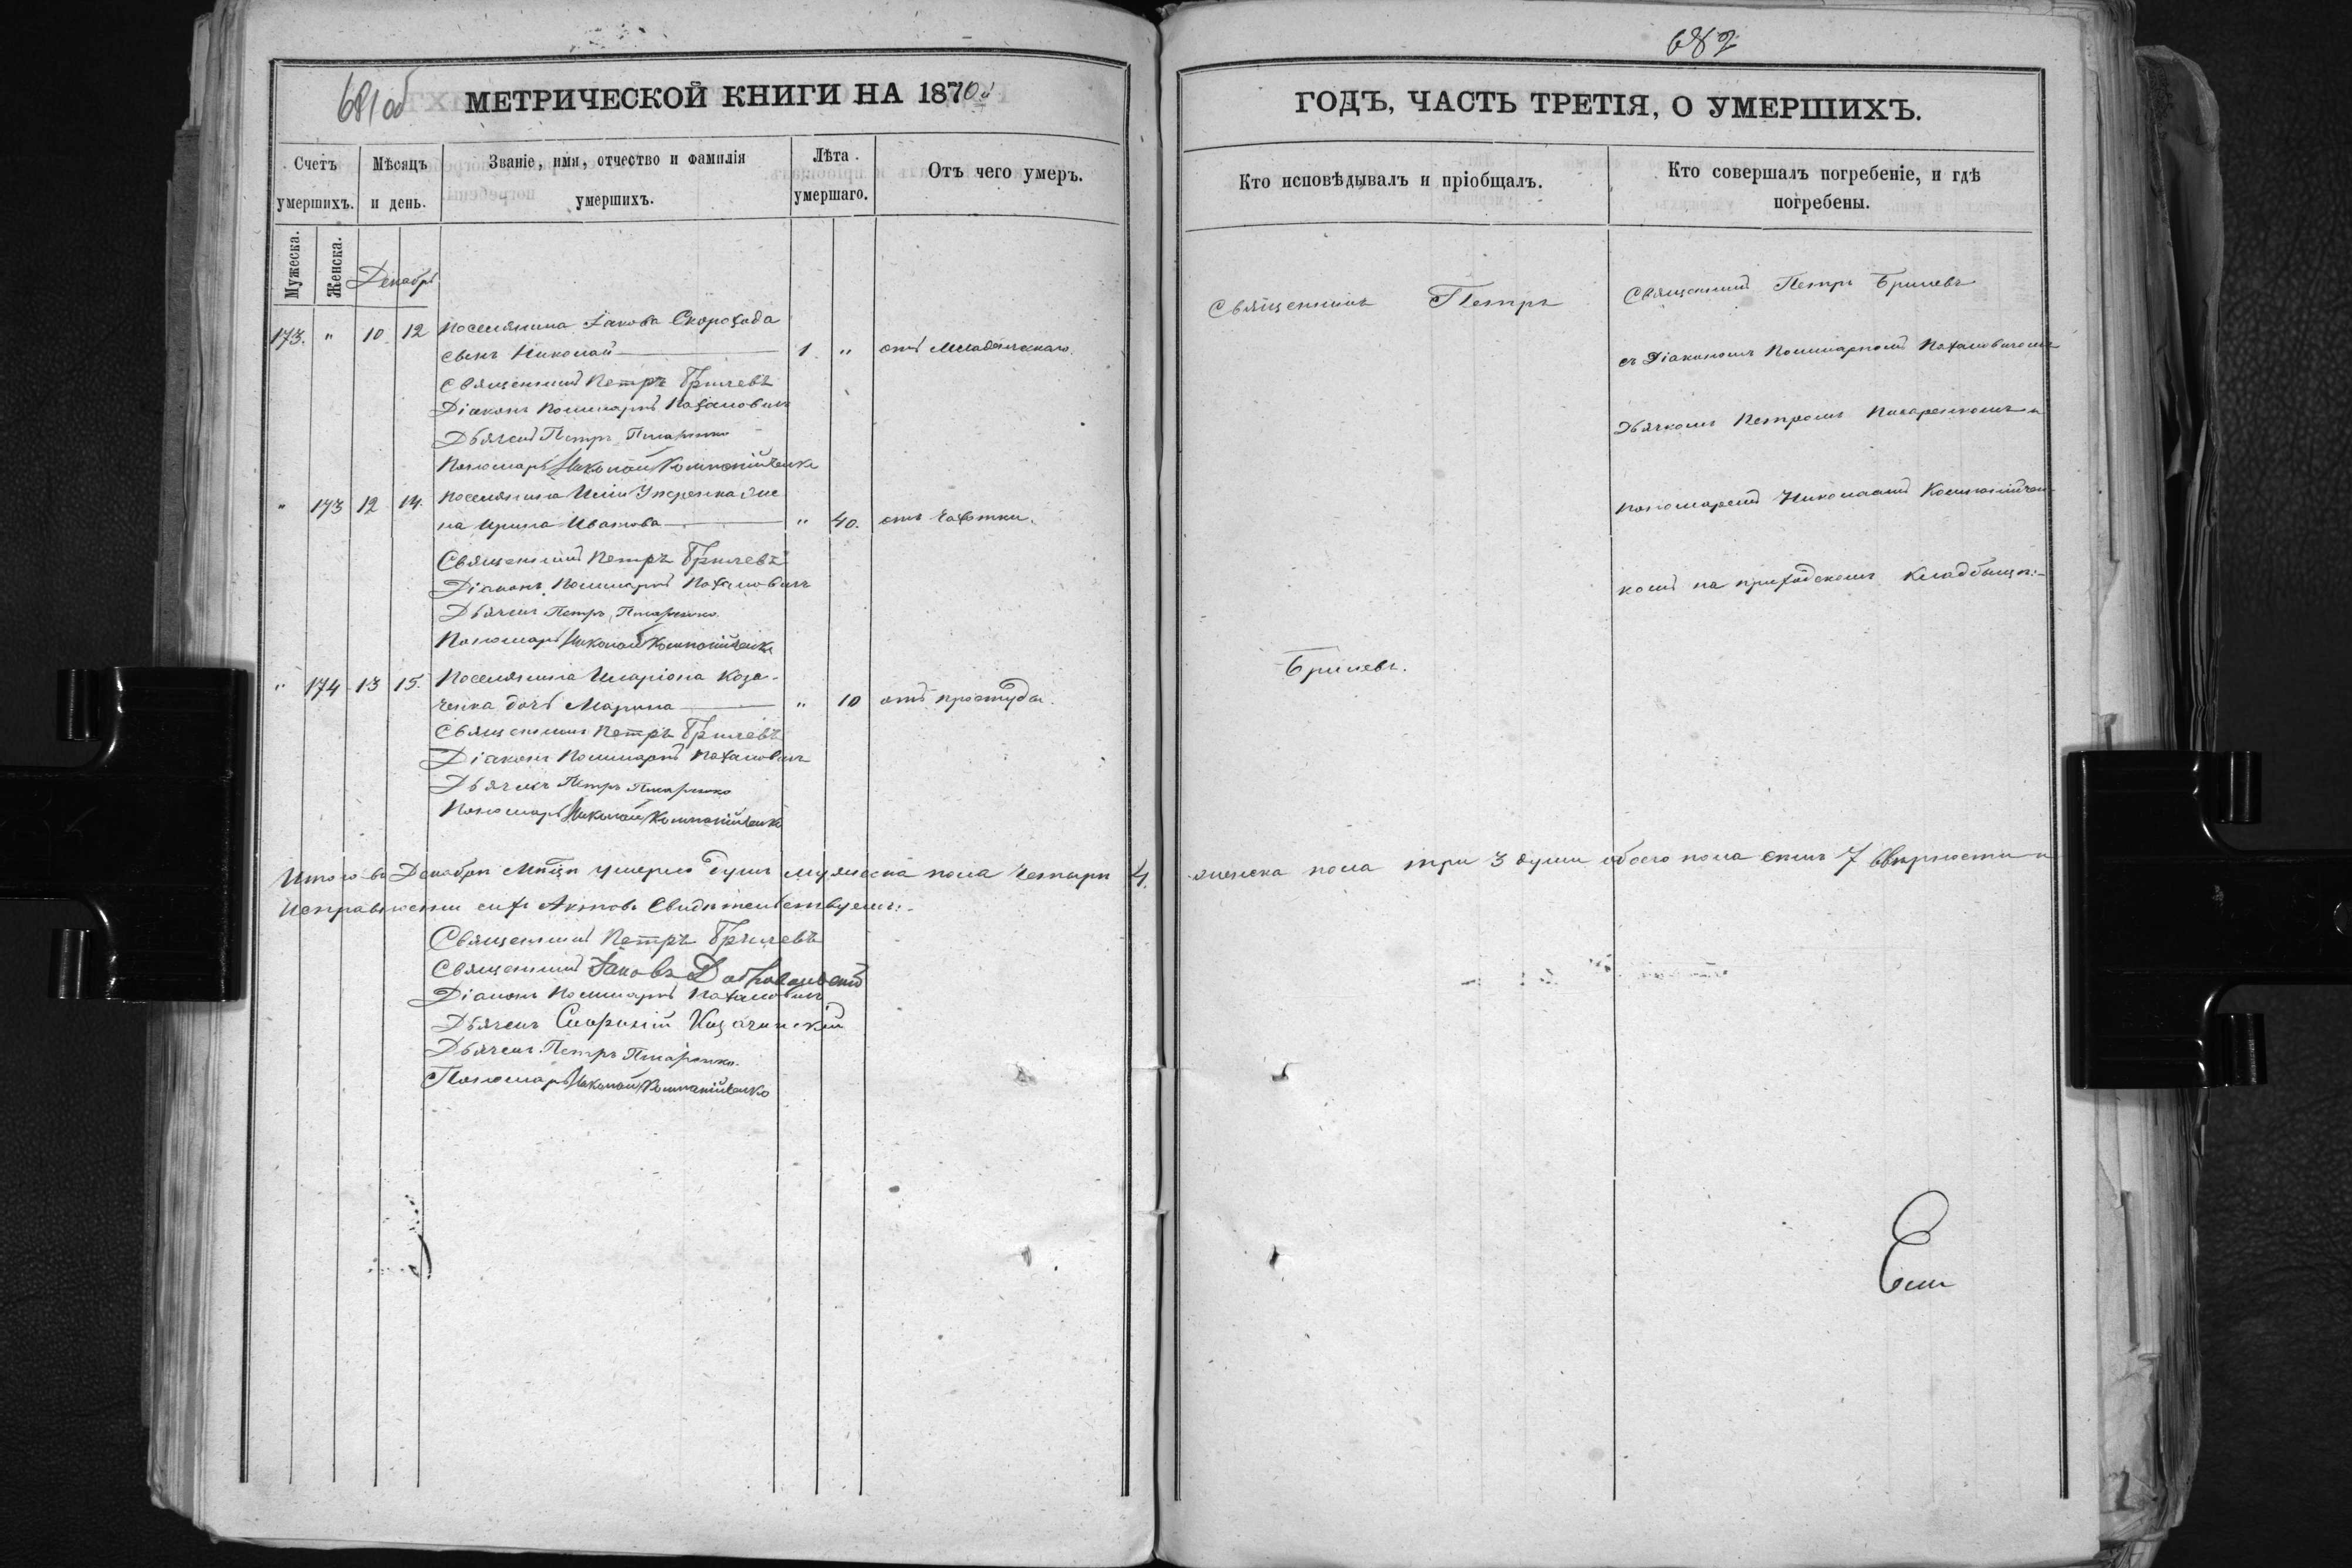 681об
МЕТРИЧЕСКОЙ КНИГИ НА 1870й
Счетъ умершихъ.
Мѣсяцъ и день.
Званіе, имя, отчество и фамилія умершихъ.
Лѣта умершаго.
Отъ чего умеръ.
Мужеска.
Женска.
Декабрь
173. " 10. 12 Поселянина Іакова Скорохода
сынъ Николай 1. " отъ младенческаго.
Священникъ Петръ Брилевъ
Діаконъ Поликарпъ
Дьячекъ Петръ Писаренко
Пономарь Николай Компанійченко
" 173 12 14. Поселянина же
на Ирина Иванова " 40. отъ чахотки.
Священникъ Петръ Брилевъ
Діаконъ Поликарпъ
Дьячекъ Петръ Писаренко
Пономарь Николай Компанійченко
" 174 13 15. Поселянина Иларіона Коза-
ченка дочь Марина " 10 отъ простуды.
Священникъ Петръ Брилевъ
Діаконъ Поликарпъ
Дьячекъ Петръ Писаренко
Пономарь Николай Компанійченко
Итого въ Декабрѣ м̃цѣ умерло душъ мужеска пола четыре 4.
исправности сихъ актовъ свидѣтельствуемъ:
Священникъ Петръ Брилевъ
Священникъ Іаковъ
Діаконъ Поликарпъ
Дьячекъ Козачинскій
Дьячекъ Петръ Писаренко
Пономарь Николай Компанійченко
682
ГОДЪ, ЧАСТЬ ТРЕТІЯ, О УМЕРШИХЪ.
Кто исповѣдывалъ и пріобщалъ.
Кто совершалъ погребеніе, и гдѣ погребены.
Священникъ Петръ
Брилевъ.
Священникъ Петръ Брилевъ
съ Діакономъ Поликарпомъ
Дьячкомъ Петромъ Писаренкомъ и
Пономаремъ Николаемъ Компанійчен-
комъ на приходскомъ кладбищѣ:
женска пола три 3 души обоего пола семь 7 вѣрности и